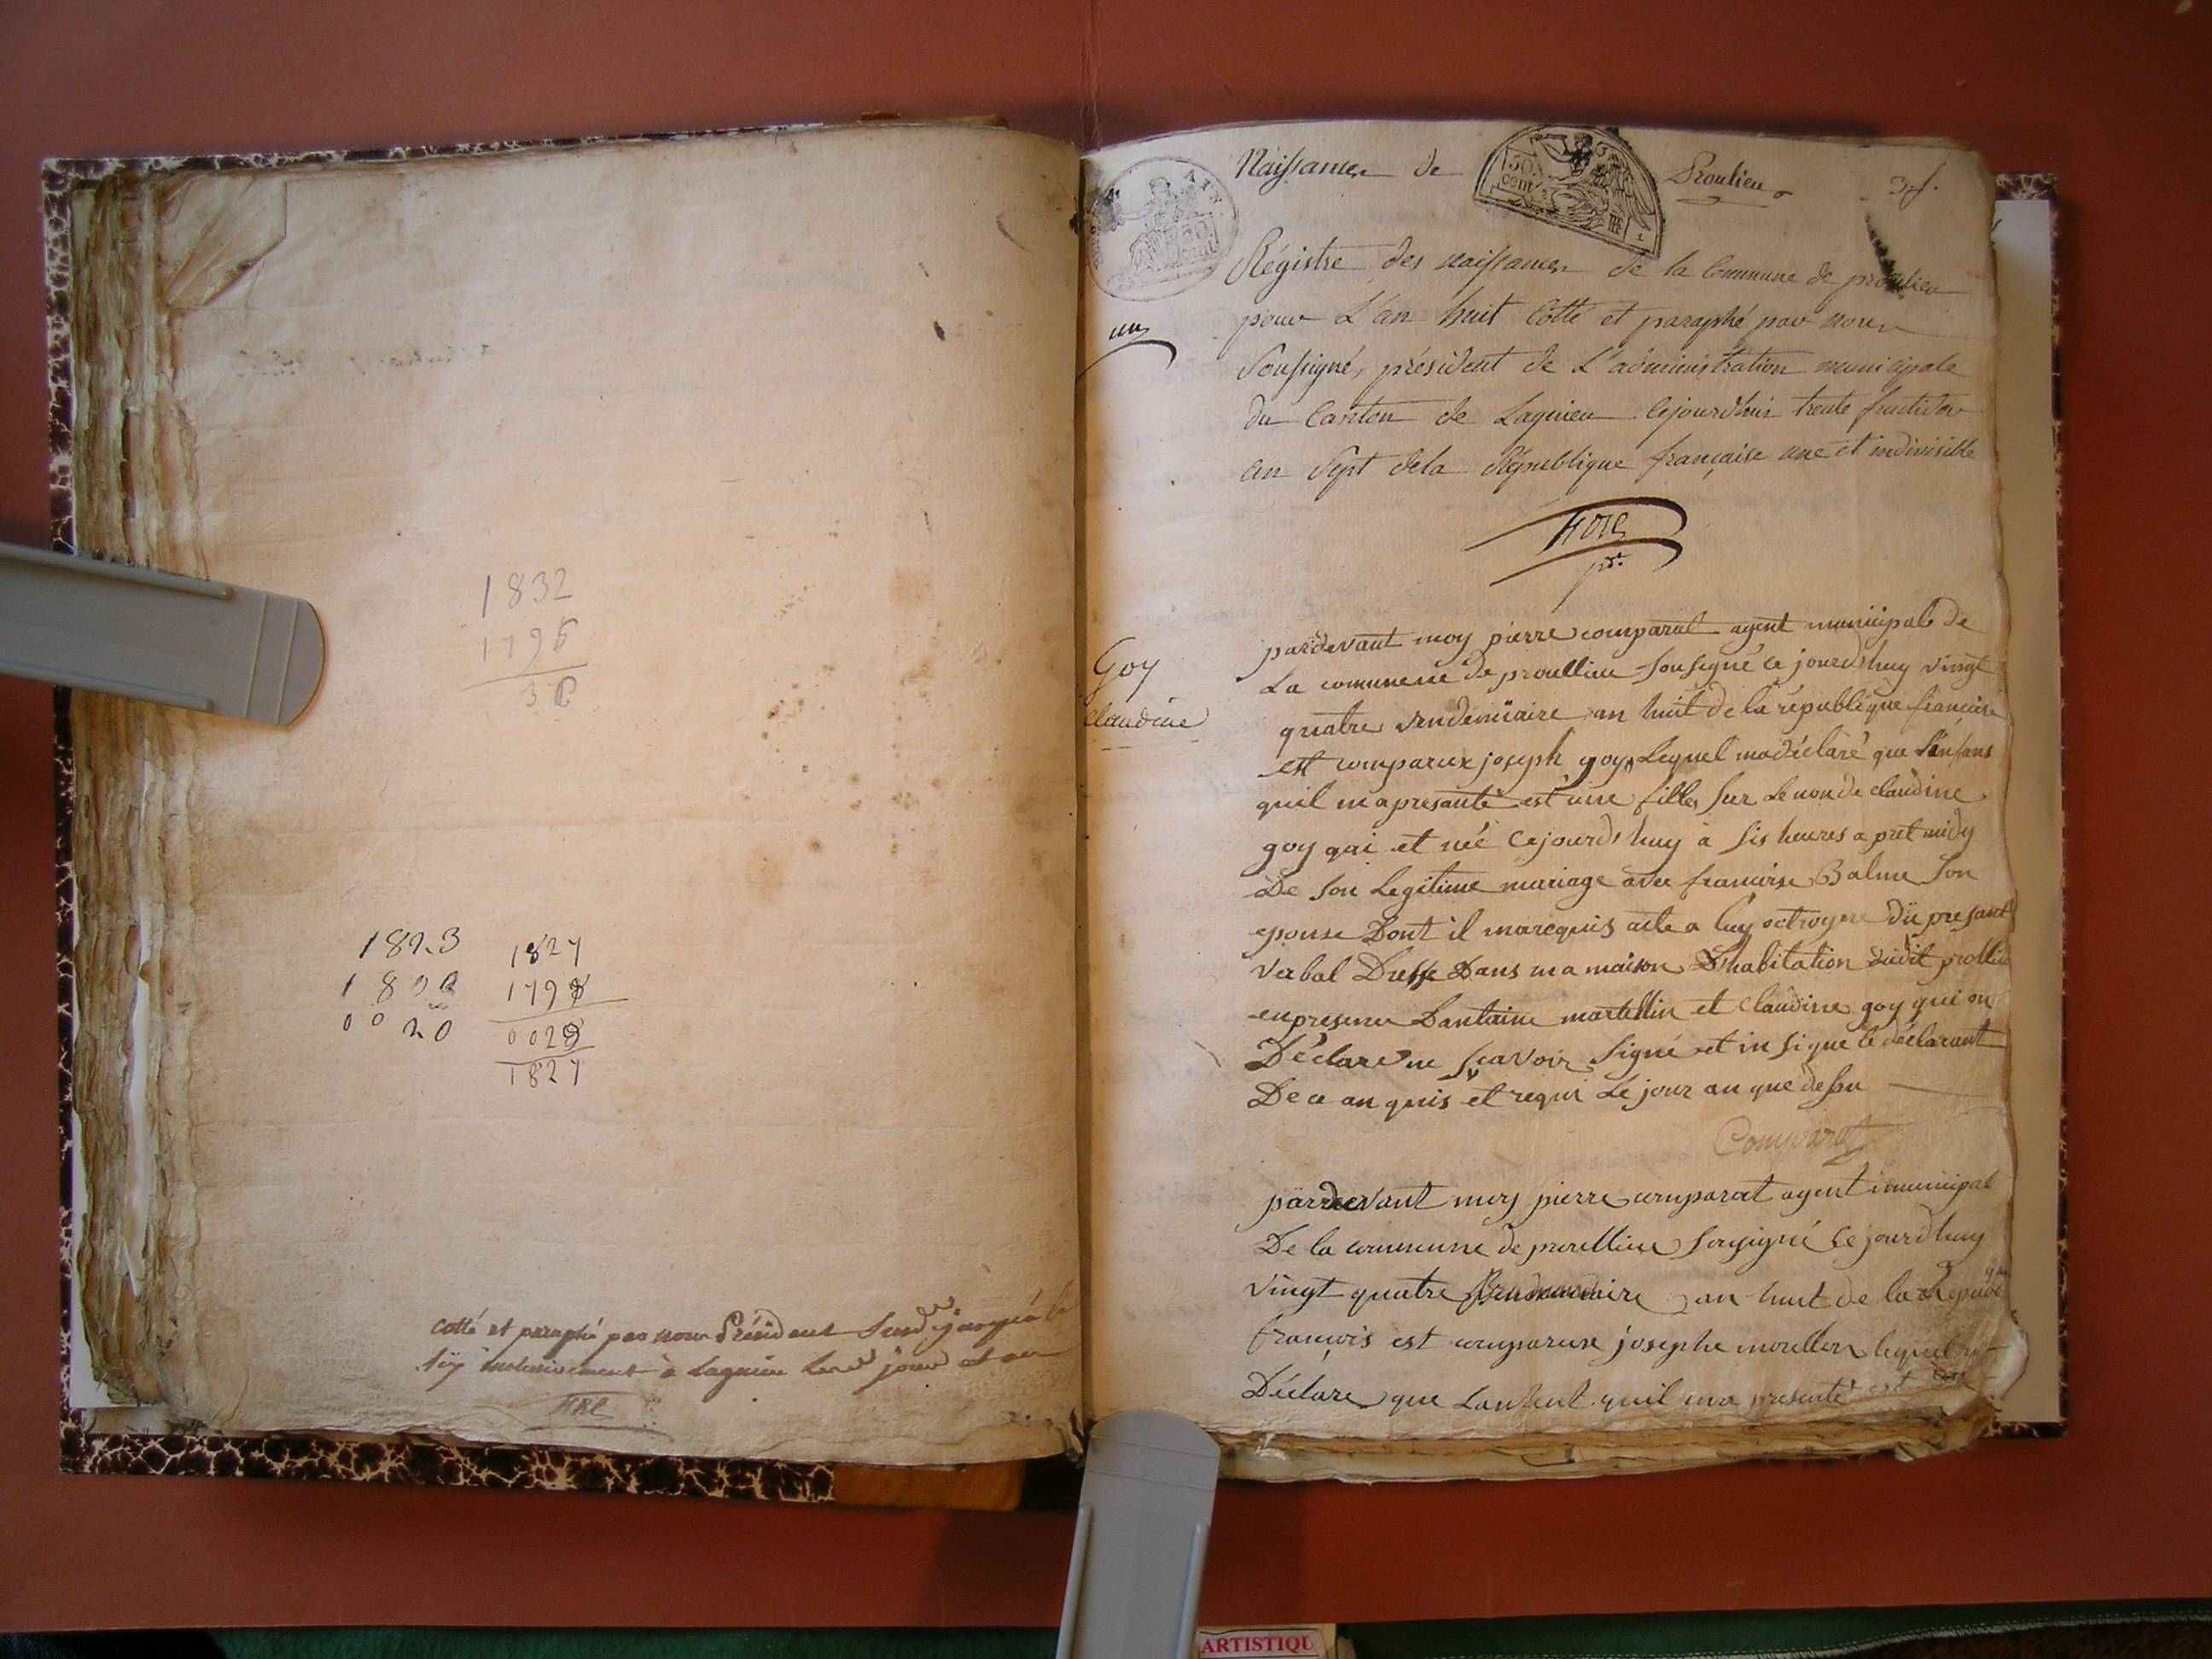 1832
1796
36
1823
1800
0020
1827
1798
0029
1827
cotté et paraphé par nous Président
inclusivement à Lagnieu jour et an
Naissances de Proulieu
3 f.
AIN
50 cent
50. cent
un
Régistre des naissances de la Commune de proulieu
pour L'an huit Cotté et paraphé par nous
Soussigné, président de L'administration municipale
du Canton de Lagnieu Cejourdhui trente fructidor
an Sept dela République française une et indivisible
Goy
Claudine
pardevant moy pierre comparat agent municipale de
La communne de proullieu sousigné ce jourdhuy vingt
quatre vendemiaire an huit de la république francoise
est comparux joseph goy Lequel ma déclaré que Lenfans
quil ma presanté est une fille sur Le non de claudine
goy qui et née Cejourd'huy à sis heures a pret midy
De son Legitime mariage avec francoise Balme son
epouse Dont il marequis acte a luy octroyer du presant
verbal Dresse Dans ma maison D'habitation dudit prollieu
enpresence Dantoine martellin et Claudine goy qui on
Déclare ne scavoir signé et insique le déclarant
De ce an quis et requi Le jour an que dessu
Comparat
pardevant moy pierre comparat agent municipal
De la communne de proullieu sousigné Ce jourdhuy
vingt quatre an huit de la Republique
francois est comparux josephe morellon lequel
Déclare que Lanfent quil ma presenté est
ARTISTIQU